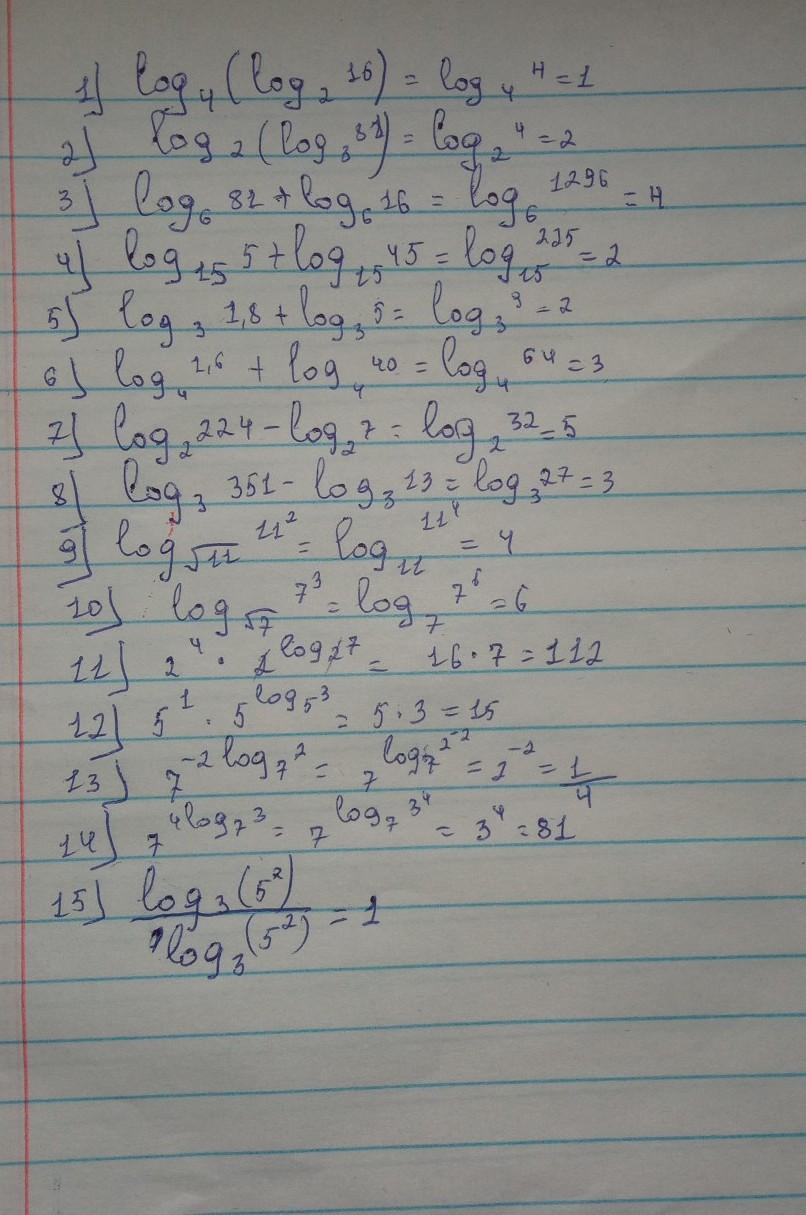 1) log₄(log₂ 16) = log₄ 4 = 1
2) log₂(log₃ 81) = log₂ 4 = 2
3) log₆ 81 + log₆ 16 = log₆ 1296 = 4
4) log₁₅ 5 + log₁₅ 45 = log₁₅ 225 = 2
5) log₃ 1,8 + log₃ 5 = log₃ 9 = 2
6) log₄ 1,6 + log₄ 40 = log₄ 64 = 3
7) log₂ 224 - log₂ 7 = log₂ 32 = 5
8) log₃ 351 - log₃ 13 = log₃ 27 = 3
9) log_√11 11² = log₁₁ 11⁴ = 4
10) log_√7 7³ = log₇ 7⁶ = 6
11) 2⁴ · 2^(log₂ 7) = 16 · 7 = 112
12) 5¹ · 5^(log₅ 3) = 5 · 3 = 15
13) 7^(-2 log₇ 2) = 7^(log₇ 2⁻²) = 2⁻² = 1/4
14) 7^(4 log₇ 3) = 7^(log₇ 3⁴) = 3⁴ = 81
15) log₃(5²) / log₃(5²) = 1